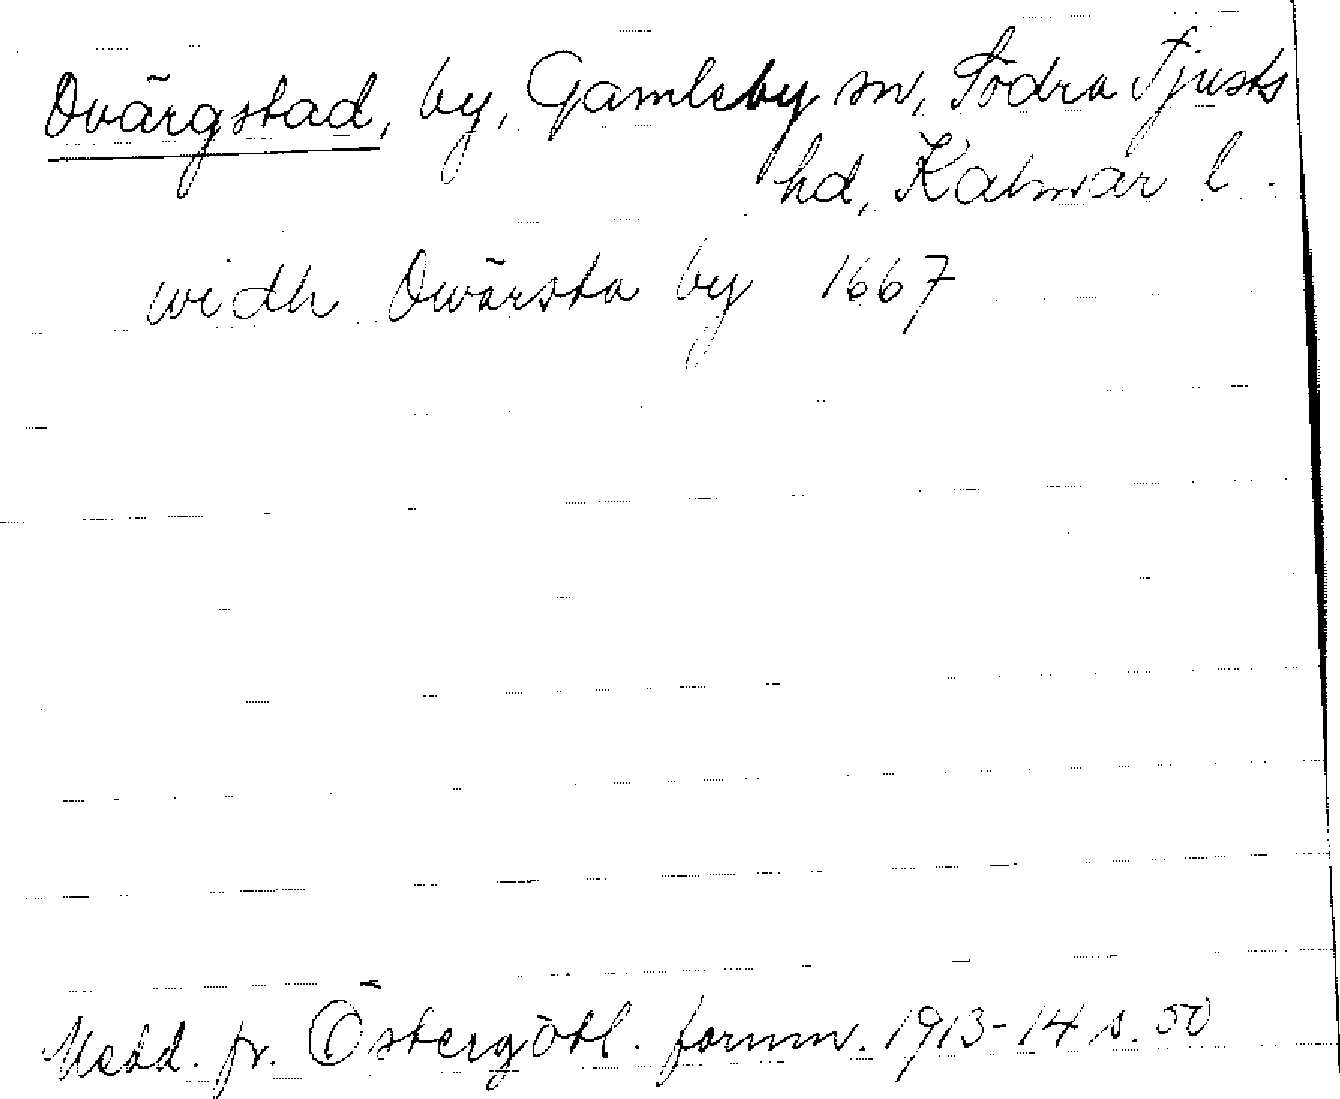 Dvärgstad, by, Gamleby sn, Södra Tjusts
hd, Kalmar l.
widh Dwärsta by 1667
Medd. fr. Östergötl. fornm. 1913-14 s. 50